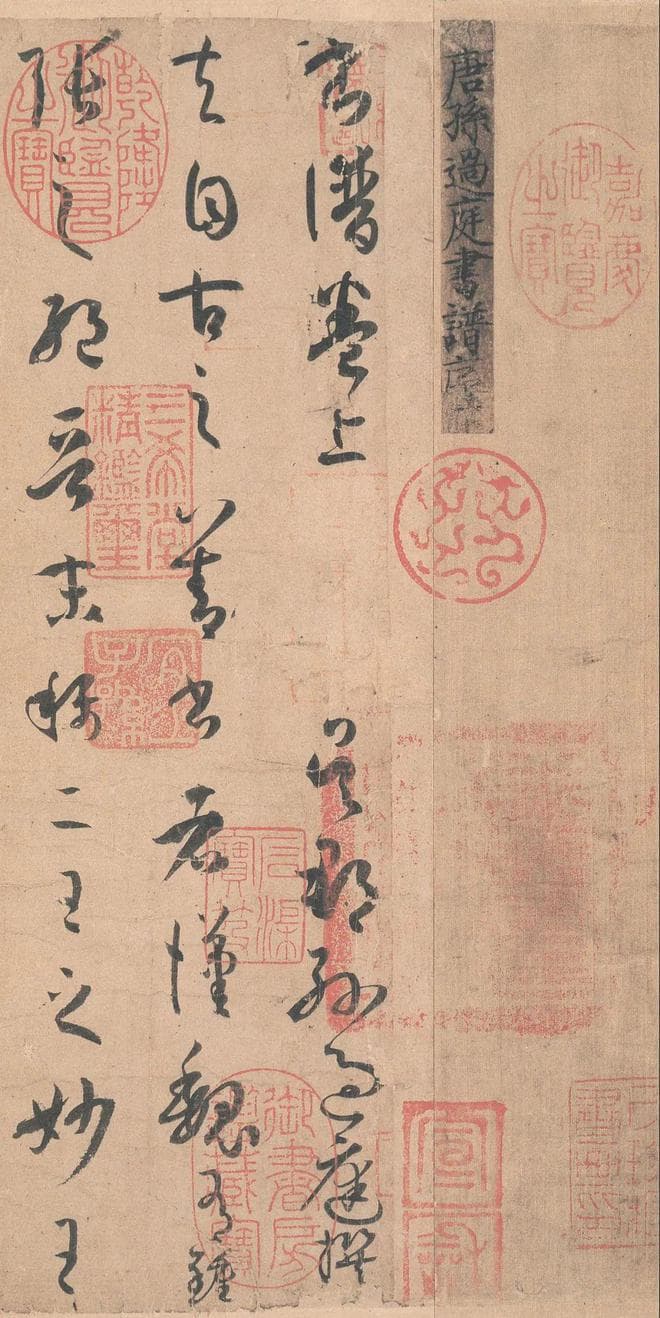 嘉慶御覽之寶
唐孫過庭書譜序
宣和
書譜卷上 吳郡孫過庭撰
夫自古之善書者漢魏有鍾
張之絕晉末稱二王之妙王
石渠寶笈
御書房鑑藏寶
乾隆御覽之寶
三希堂精鑑璽
宜子孫